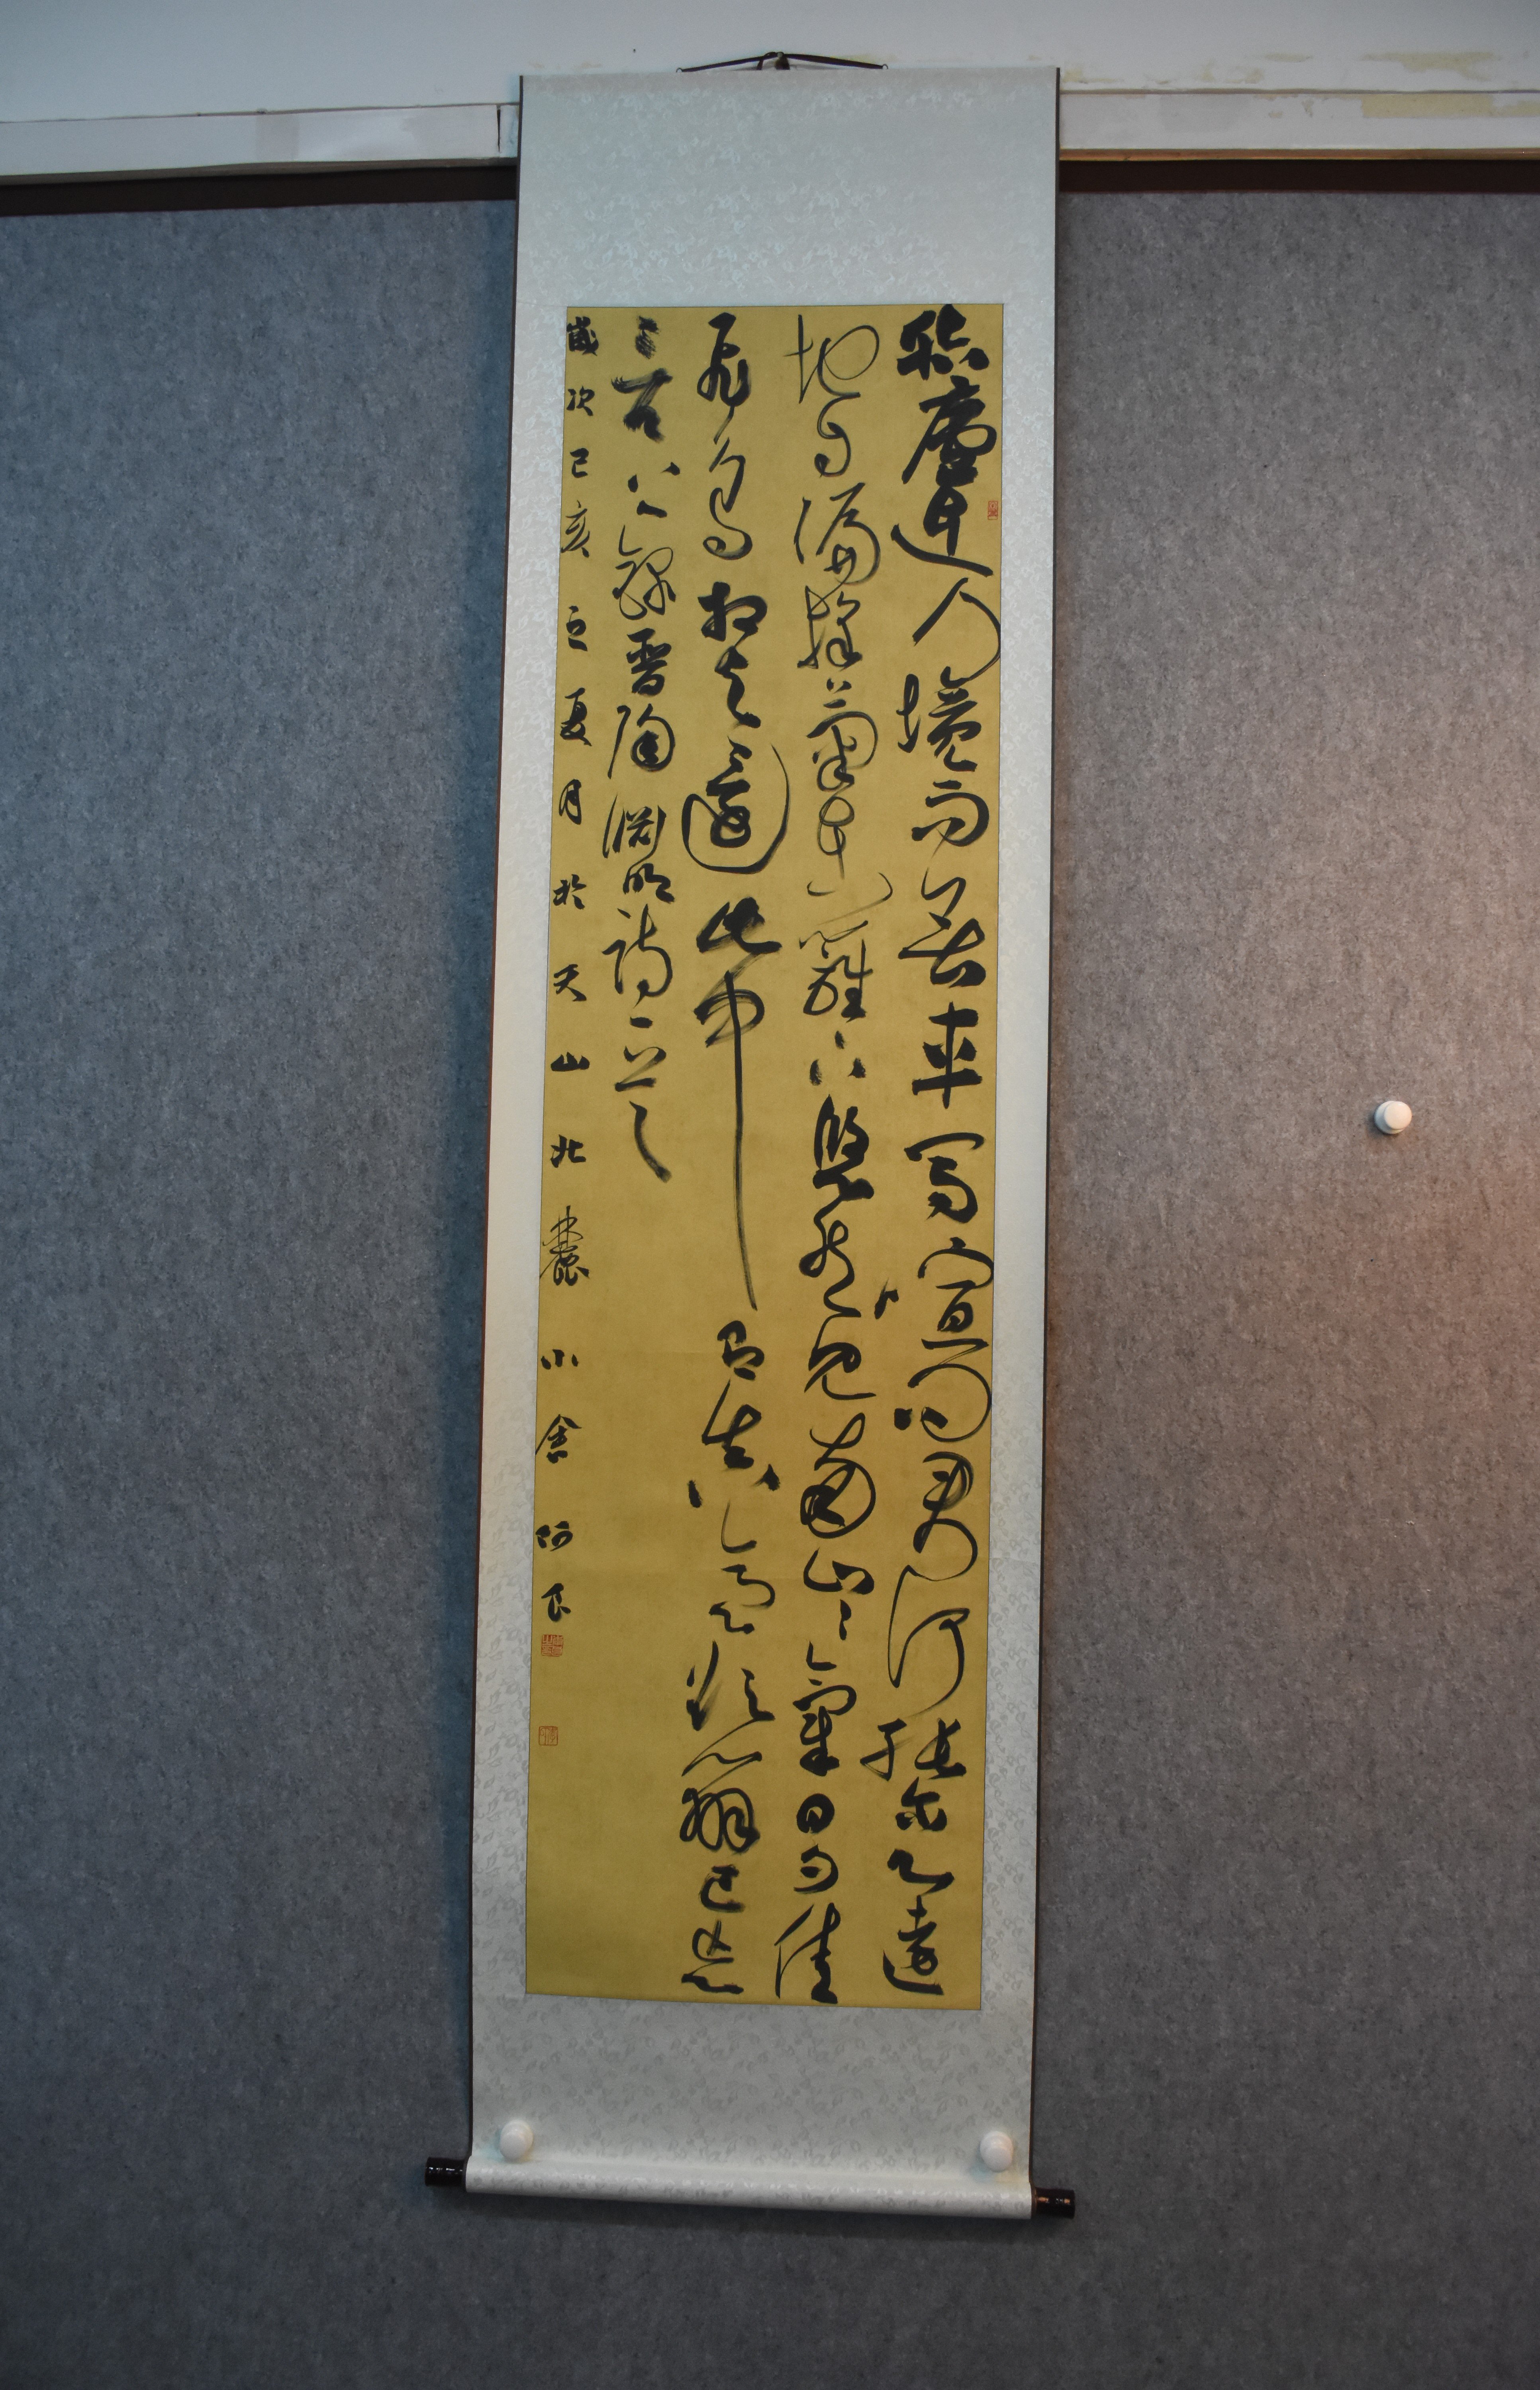 結廬在人境而無車馬喧問君何能爾心遠
地自偏採菊東籬下悠然見南山〻氣日夕佳
飛鳥相與還此中有真意欲辯已忘
言以上錄晉陶淵明詩一首
歲次己亥之夏月於天山北麓小舍阿良